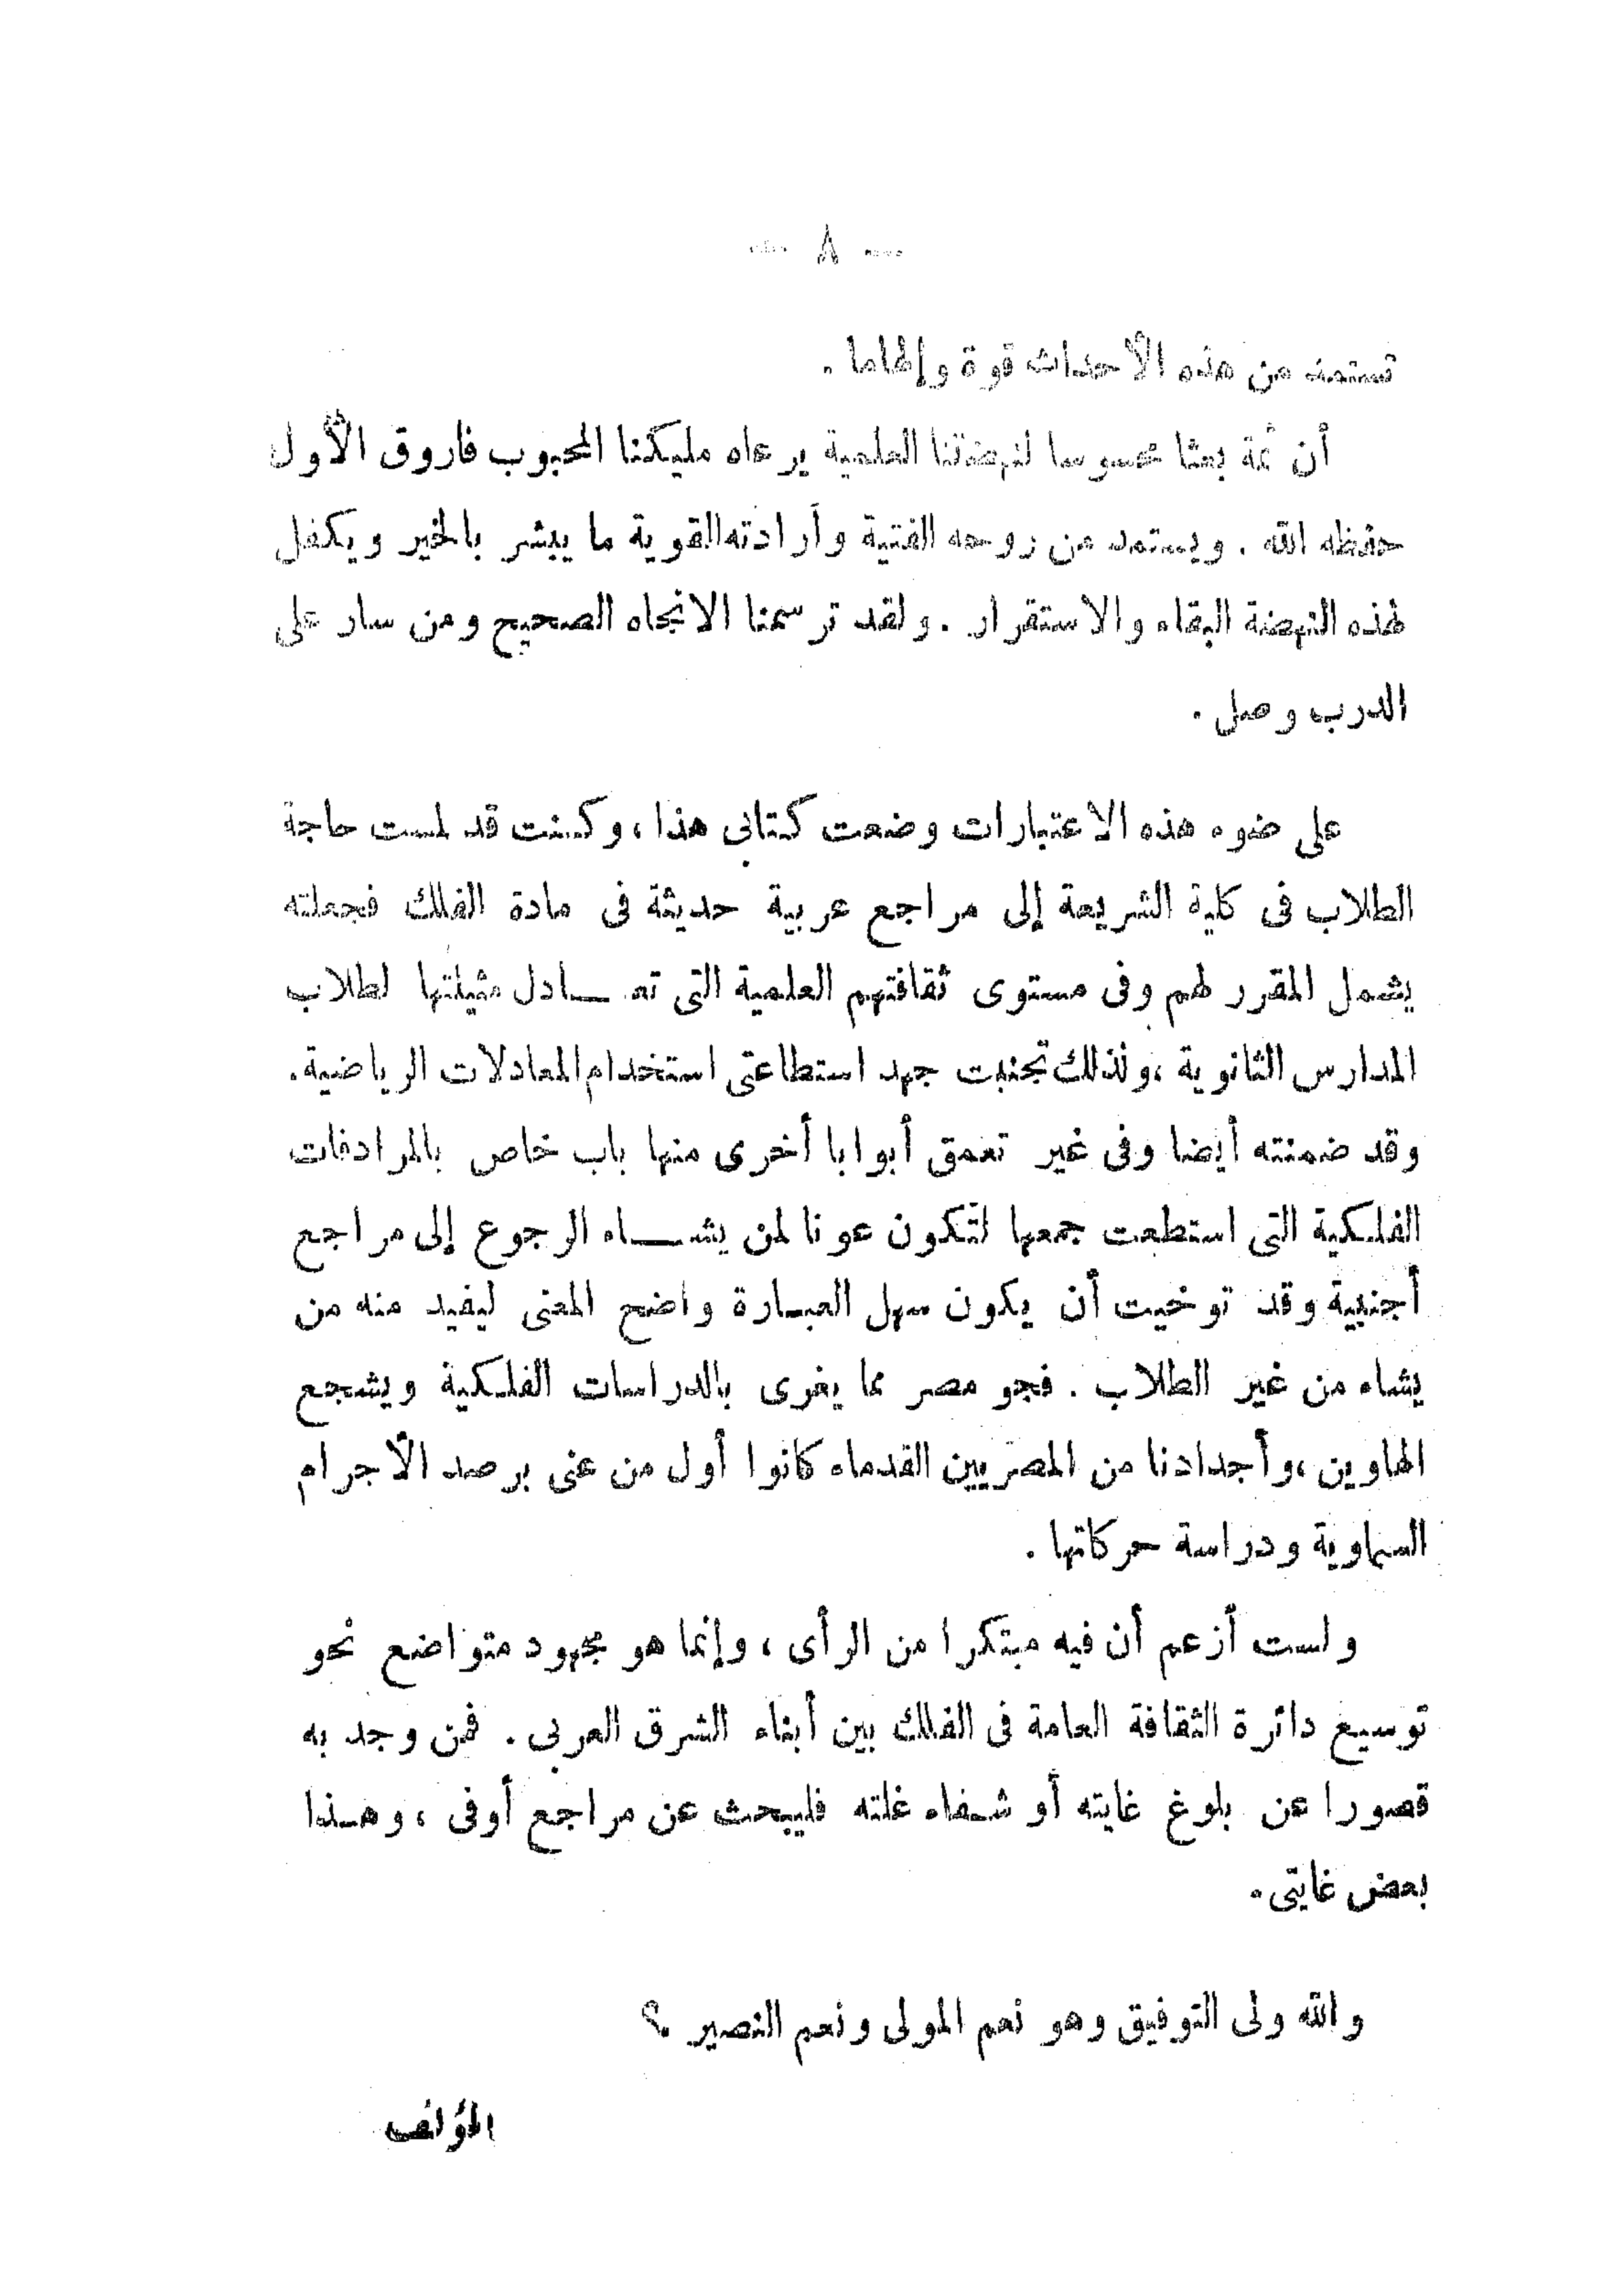 — ٨ —
تستمد من هذه الأحداث قوة وإلهاما .
أن ثمة بعثا محسوسا لنهضتنا العلمية يرعاه مليكنا المحبوب فاروق الأول
حفظه الله . ويستمد من روحه الفتية وأرادته القوية ما يبشر بالخير ويكفل
لهذه النهضة البقاء والاستقرار . ولقد ترسمنا الاتجاه الصحيح ومن سار على
الدرب وصل .
على ضوء هذه الاعتبارات وضعت كتابى هذا ، وكنت قد لمست حاجة
الطلاب فى كلية الشريعة إلى مراجع عربية حديثة فى مادة الفلك فجعلته
يشمل المقرر لهم وفى مستوى ثقافتهم العلمية التى تعـــادل مثيلتها لطلاب
المدارس الثانوية ، ولذلك تجنبت جهد استطاعتى استخدام المعادلات الرياضية .
وقد ضمنته أيضا وفى غير تعمق أبوابا أخرى منها باب خاص بالمرادفات
الفلكية التى استطعت جمعها لتكون عونا لمن يشـــاء الرجوع إلى مراجع
أجنبية وقد توخيت أن يكون سهل العبـارة واضح المعنى ليفيد منه من
يشاء من غير الطلاب . فجو مصر مما يغرى بالدراسات الفلكية ويشجع
الهاوين ، وأجدادنا من المصريين القدماء كانوا أول من عنى برصد الأجرام
السماوية ودراسة حركاتها .
ولست أزعم أن فيه مبتكرا من الرأى ، وإنما هو مجهود متواضع نحو
توسيع دائرة الثقافة العامة فى الفلك بين أبناء الشرق العربى . فمن وجد به
قصورا عن بلوغ غايته أو شـفاء غلته فليبحث عن مراجع أوفى ، وهـذا
بعض غايتى .
والله ولى التوفيق وهو نعم المولى ونعم النصير ؟
المؤلف